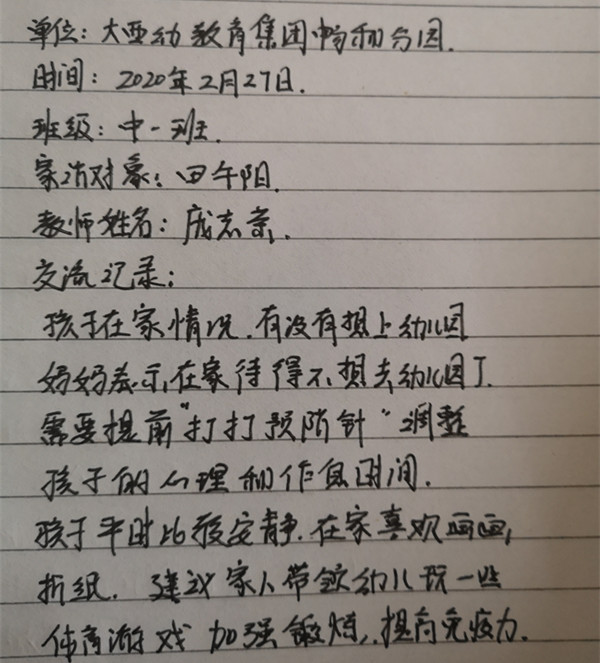 单位：大亚幼教育集团畅和分园.
时间：2020年2月27日.
班级：中一班.
家访对象：田午阳.
教师姓名：庞志京.
交流记录：
孩子在家情况.有没有想上幼儿园
妈妈表示在家待得不想去幼儿园了.
需要提前"打打预防针"调整
孩子的心理和作息时间.
孩子平时比较安静.在家喜欢画画,
折纸.建议家人带领幼儿玩一些
体育游戏 加强锻炼,提高免疫力.